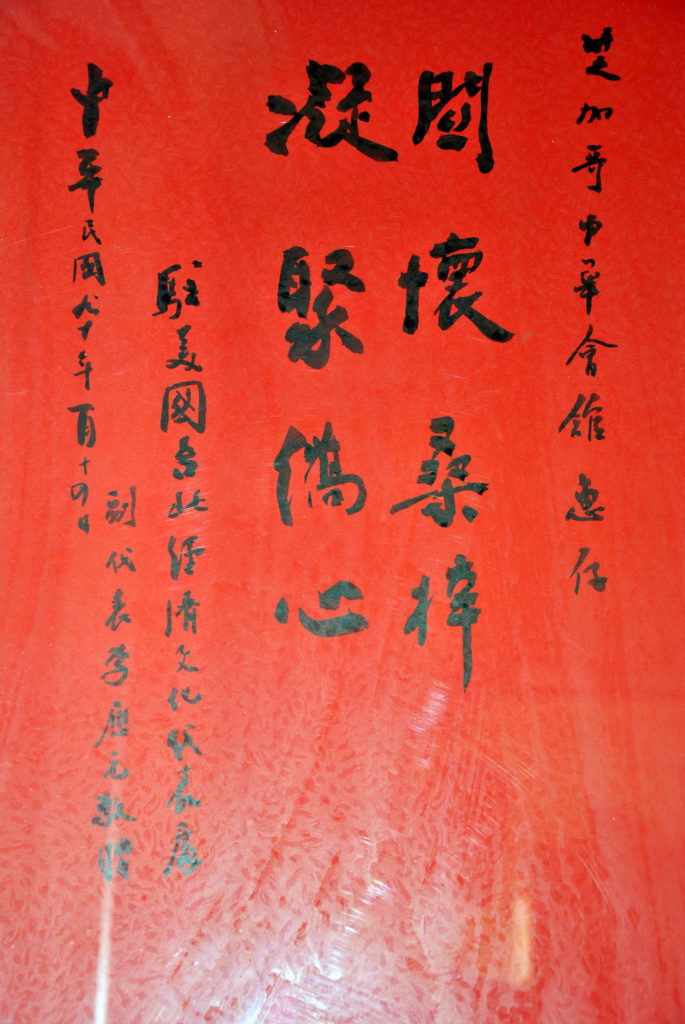 芝加哥中華會館惠存
關懷桑梓
凝聚僑心
駐美國台北經濟文化代表處
副代表李應元敬贈
中華民國九十年百十四日